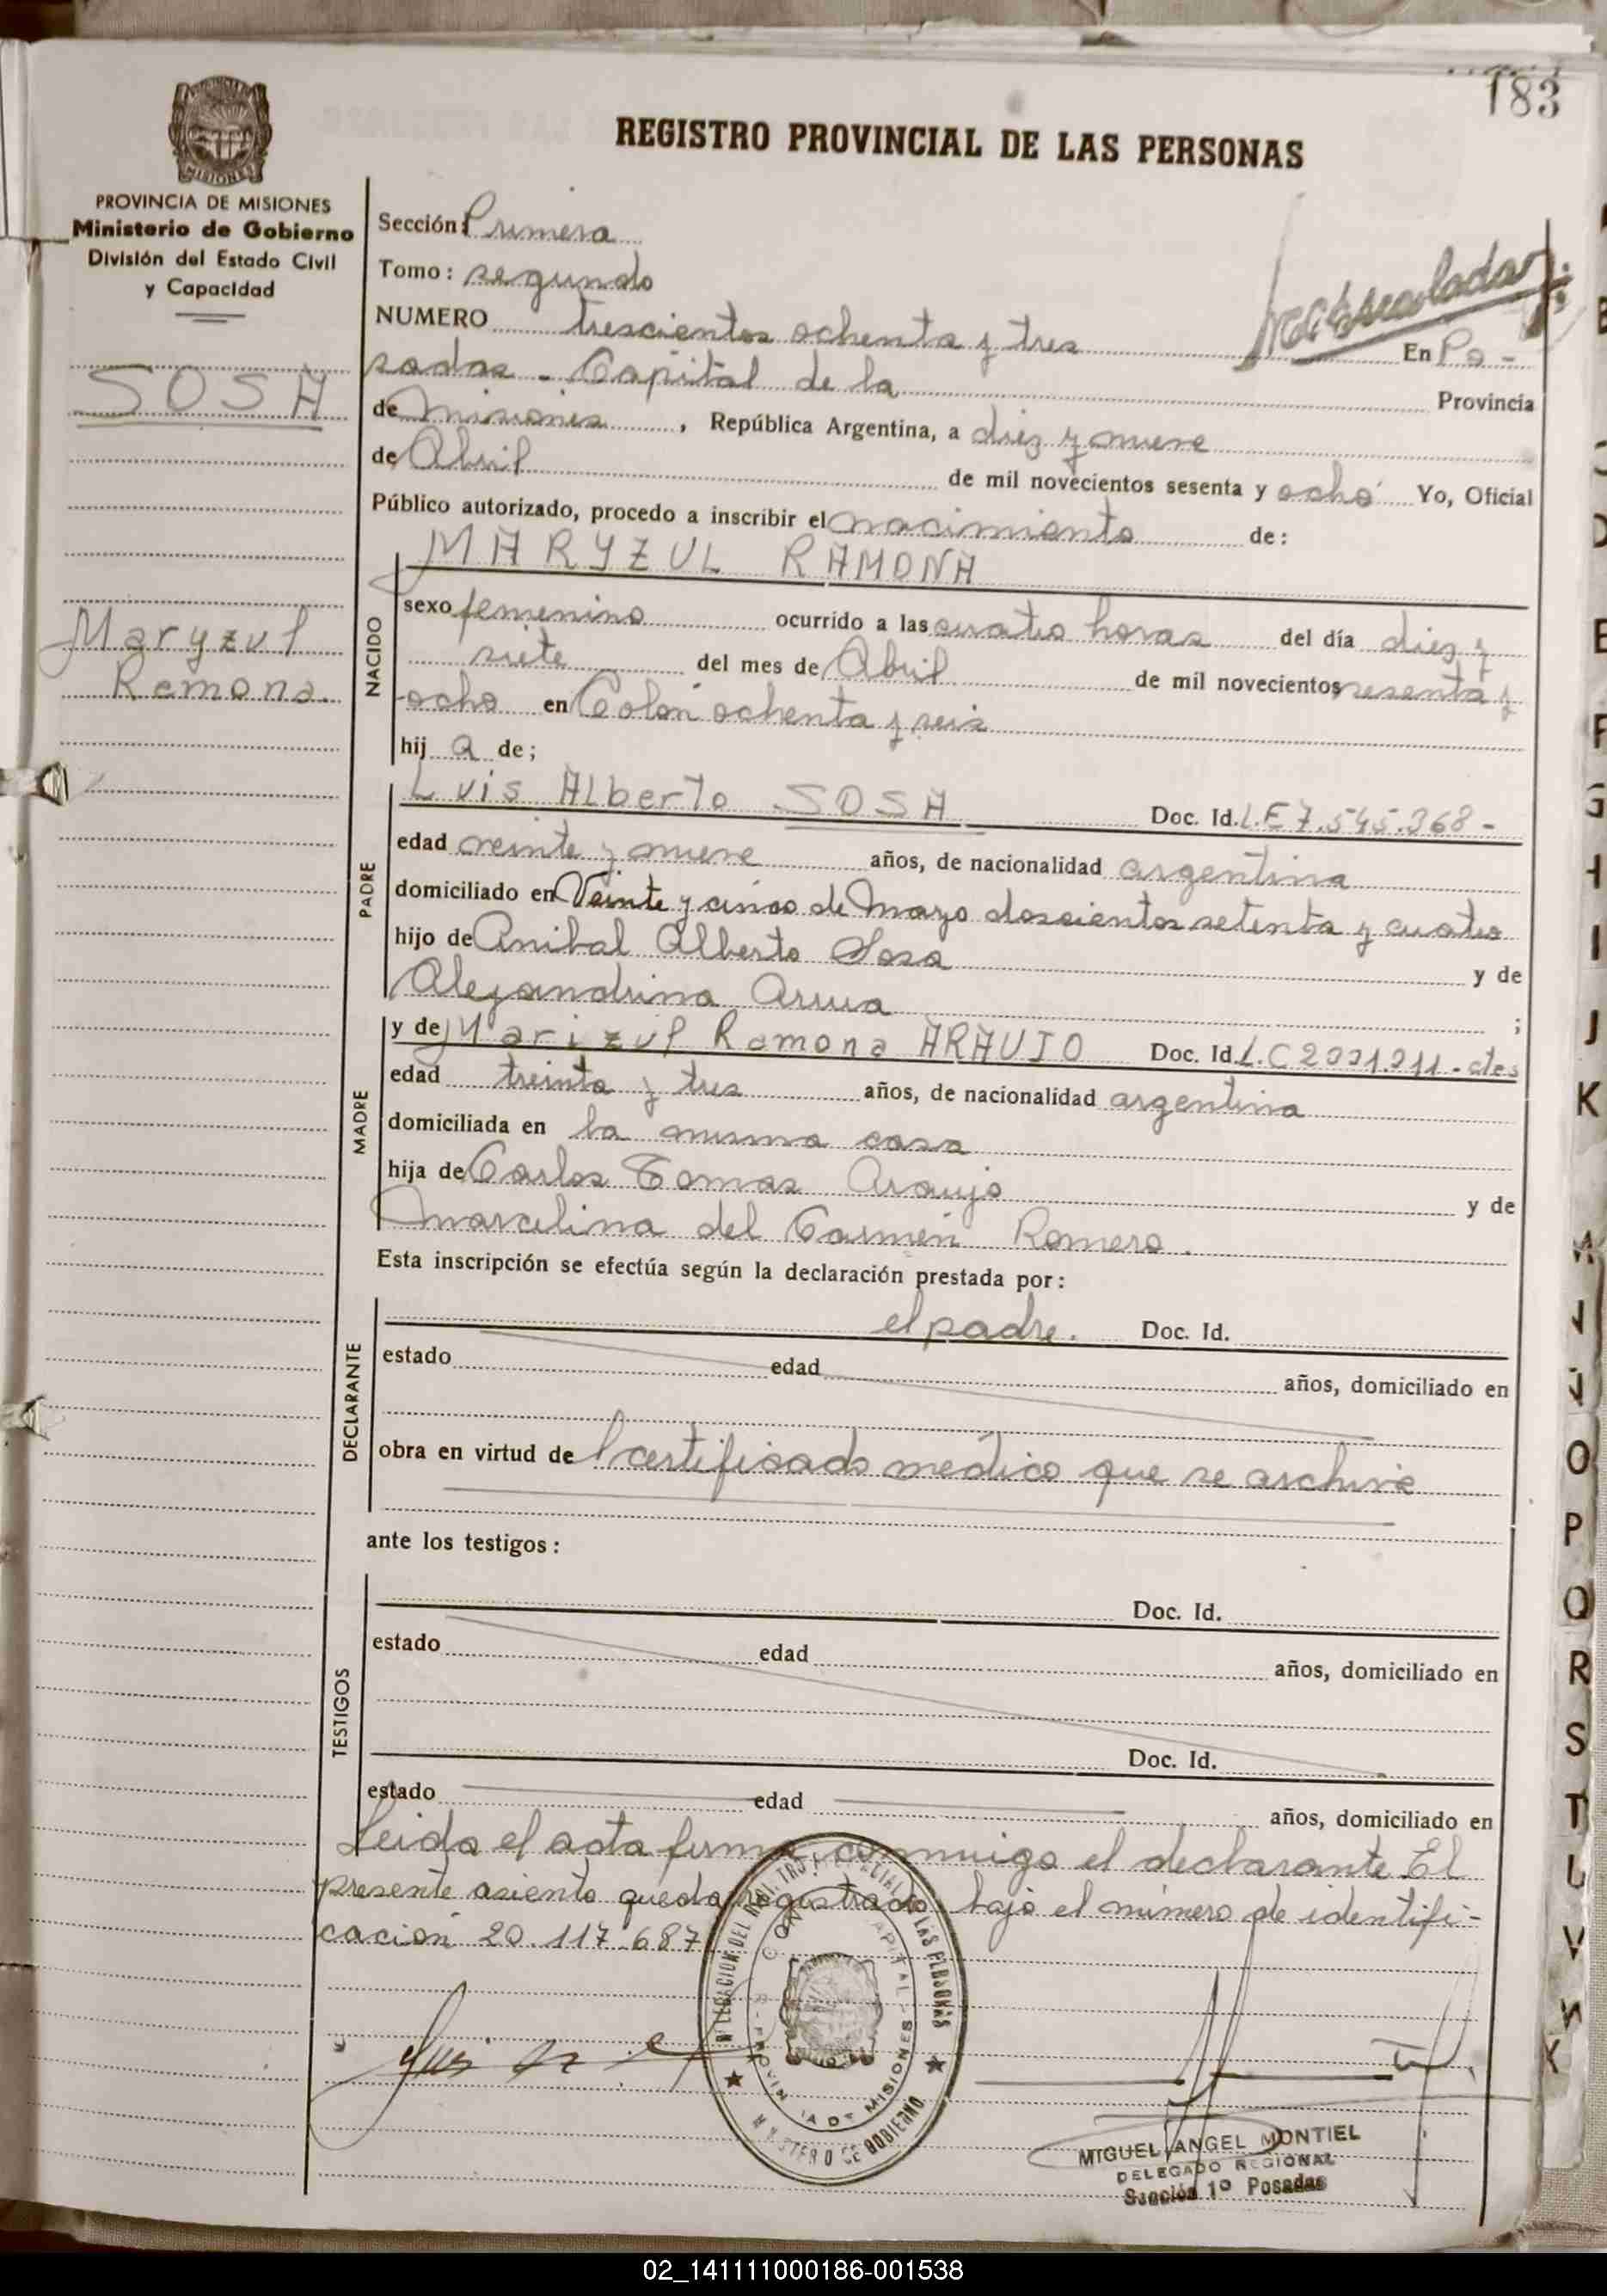 183
REGISTRO PROVINCIAL DE LAS PERSONAS
MISIONES
PROVINCIA DE MISIONES
Ministerio de Gobierno
División del Estado Civil
y Capacidad
SOSA
Maryzul
Ramona.
Sección: Primera
Tomo: segundo
NUMERO trescientos ochenta y tres En Po-
sadas - Capital de la Provincia
de Misiones, República Argentina, a diez y nueve
de Abril de mil novecientos sesenta y ocho Yo, Oficial
Público autorizado, procedo a inscribir el nacimiento de:
MARYZUL RAMONA
NACIDO
sexo femenino ocurrido a las cuatro horas del día diez y
siete del mes de Abril de mil novecientos sesenta y
ocho en Colón ochenta y seis
hij a de;
PADRE
Luis Alberto SOSA Doc. Id. L.E 7.545.368-
edad veinte y nueve años, de nacionalidad argentina
domiciliado en Veinte y cinco de Mayo doscientos setenta y cuatro
hijo de Anibal Alberto Sosa y de
Alejandrina Arrua ;
MADRE
y de Marizul Ramona ARAUJO Doc. Id. L.C
edad treinta y tres años, de nacionalidad argentina
domiciliada en la misma casa
hija de Carlos Tomas Araujo y de
Marcelina del Carmen Romero.
Esta inscripción se efectúa según la declaración prestada por:
DECLARANTE
el padre. Doc. Id.
estado edad años, domiciliado en
obra en virtud de l certificado médico que se archiva
ante los testigos:
TESTIGOS
Doc. Id.
estado edad años, domiciliado en
Doc. Id.
estado edad años, domiciliado en
Leida el acta firma conmigo el declarante El
presente asiento queda registrado bajo el número de identifi-
cación 20.117.687
MINISTERIO DE GOBIERNO
MIGUEL ANGEL MONTIEL
DELEGADO REGIONAL
Sección 1º Posadas
02_141111000186-001538